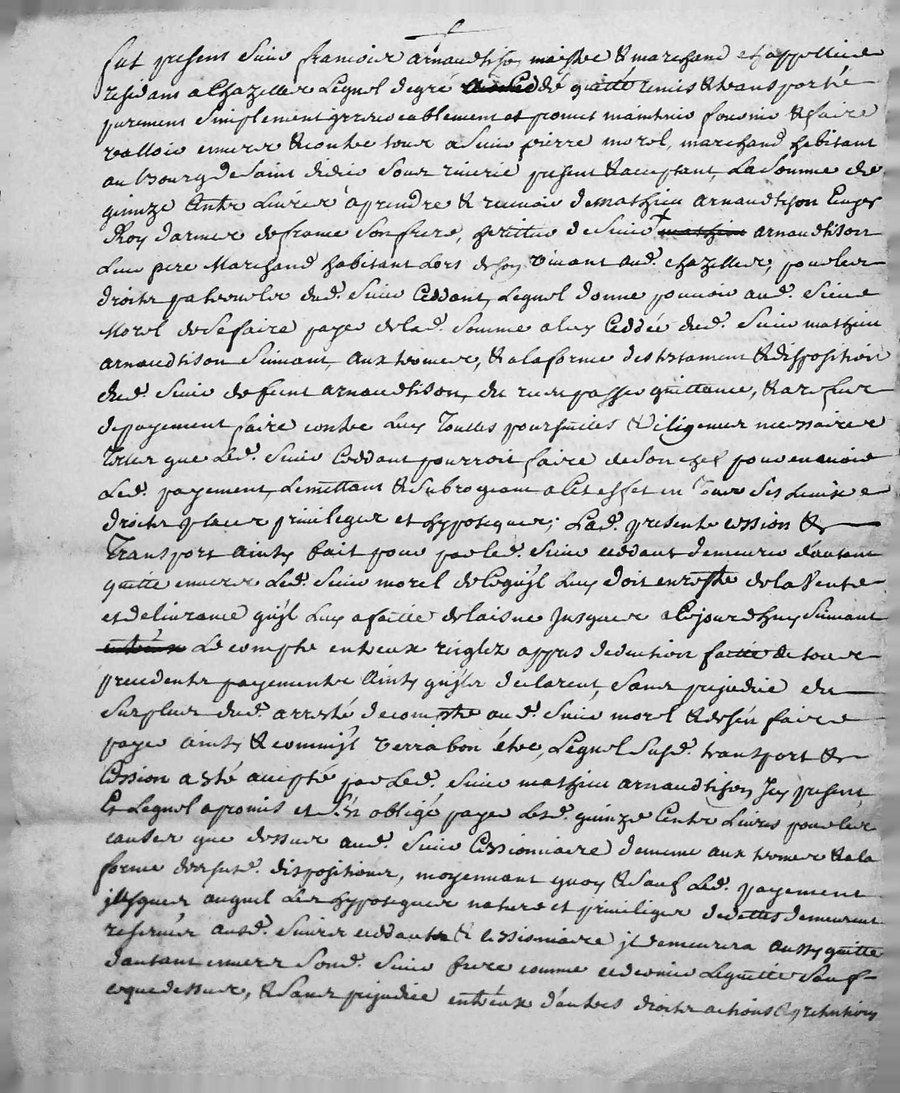 fut present Sieur francois arnaudtison maistre & marchand chappellier
residant a Chazelles Lequel de gré a cedé quitté remis & transporté
purement simplement irrevocablement et promet maintenir fournir & faire
valloir envers & contre tous a Sieur pierre morel, marchand habitant
au bourg de Saint didier Sous riverie present & acceptant, La Somme de
quinze Cents Livres a prendre & recevoir de mathieu arnaudtison
Roy darmes de france Son frere, heritier de Sieur mathieu arnaudtison
Leur pere Marchand habitant Lors de son vivant aud. chazelles, pour les
droits paternels dud. Sieur Ceddant, Lequel donne pouvoir aud. Sieur
Morel de Se faire payer de lad. Somme a luy Ceddée dud. Sieur mathieu
arnaudtison Suivant, aux termes, & a la forme des testament & disposition
dud. Sieur defunt arnaudtison, du receu passer quittance, & a reffus
de payement faire contre Luy Touttes poursuittes & diligences necessaires
Telles que Led. Sieur Ceddant pourroit faire de Son chef pour en avoir
Led. payement, Le mettant & Subrogeant a Cet effet en Tous Ses
droits places privileges et hypoteques; Lad. presente cession &
Transport ainsy fait pour par led. Sieur ceddant demeurer dautant
quitte envers Led. Sieur morel de Ce qu'il Luy doit en reste de la Vente
et delivrance qu'il Luy a faitte de laisne Jusques a Ce jourdhuy Suivant
entreux Le compte entreux reglez appres deduction faitte de tous
precedents payements Ainsy qu'ils declarent, Sans prejudice du
Surplus dud. arresté de compte aud. Sieur morel & de s'en faire
payer ainsy & comme il verra bon étre, Lequel Susd. transport &
Cession a été accepté par Led. Sieur mathieu arnaudtison Icy present,
Et Lequel a promis et S'est obligé payer Lesd. quinze Cents Livres pour les
causes que dessus aud. Sieur Cessionnaire de meme aux termes & a la
forme desusd. dispositions, moyennant quoy & Sauf Led. payement
jusques auquel Les hypoteques nature et privileges de dettes demeurent
reservés ausd. Sieurs ceddant & cessionnaire il demeurera aussy quitte
dautant envers Sond. Sieur frere comme ce dernier Le quitte Sauf
ce que dessus, & Sans prejudice entreux d'autres droits actions & pretentions